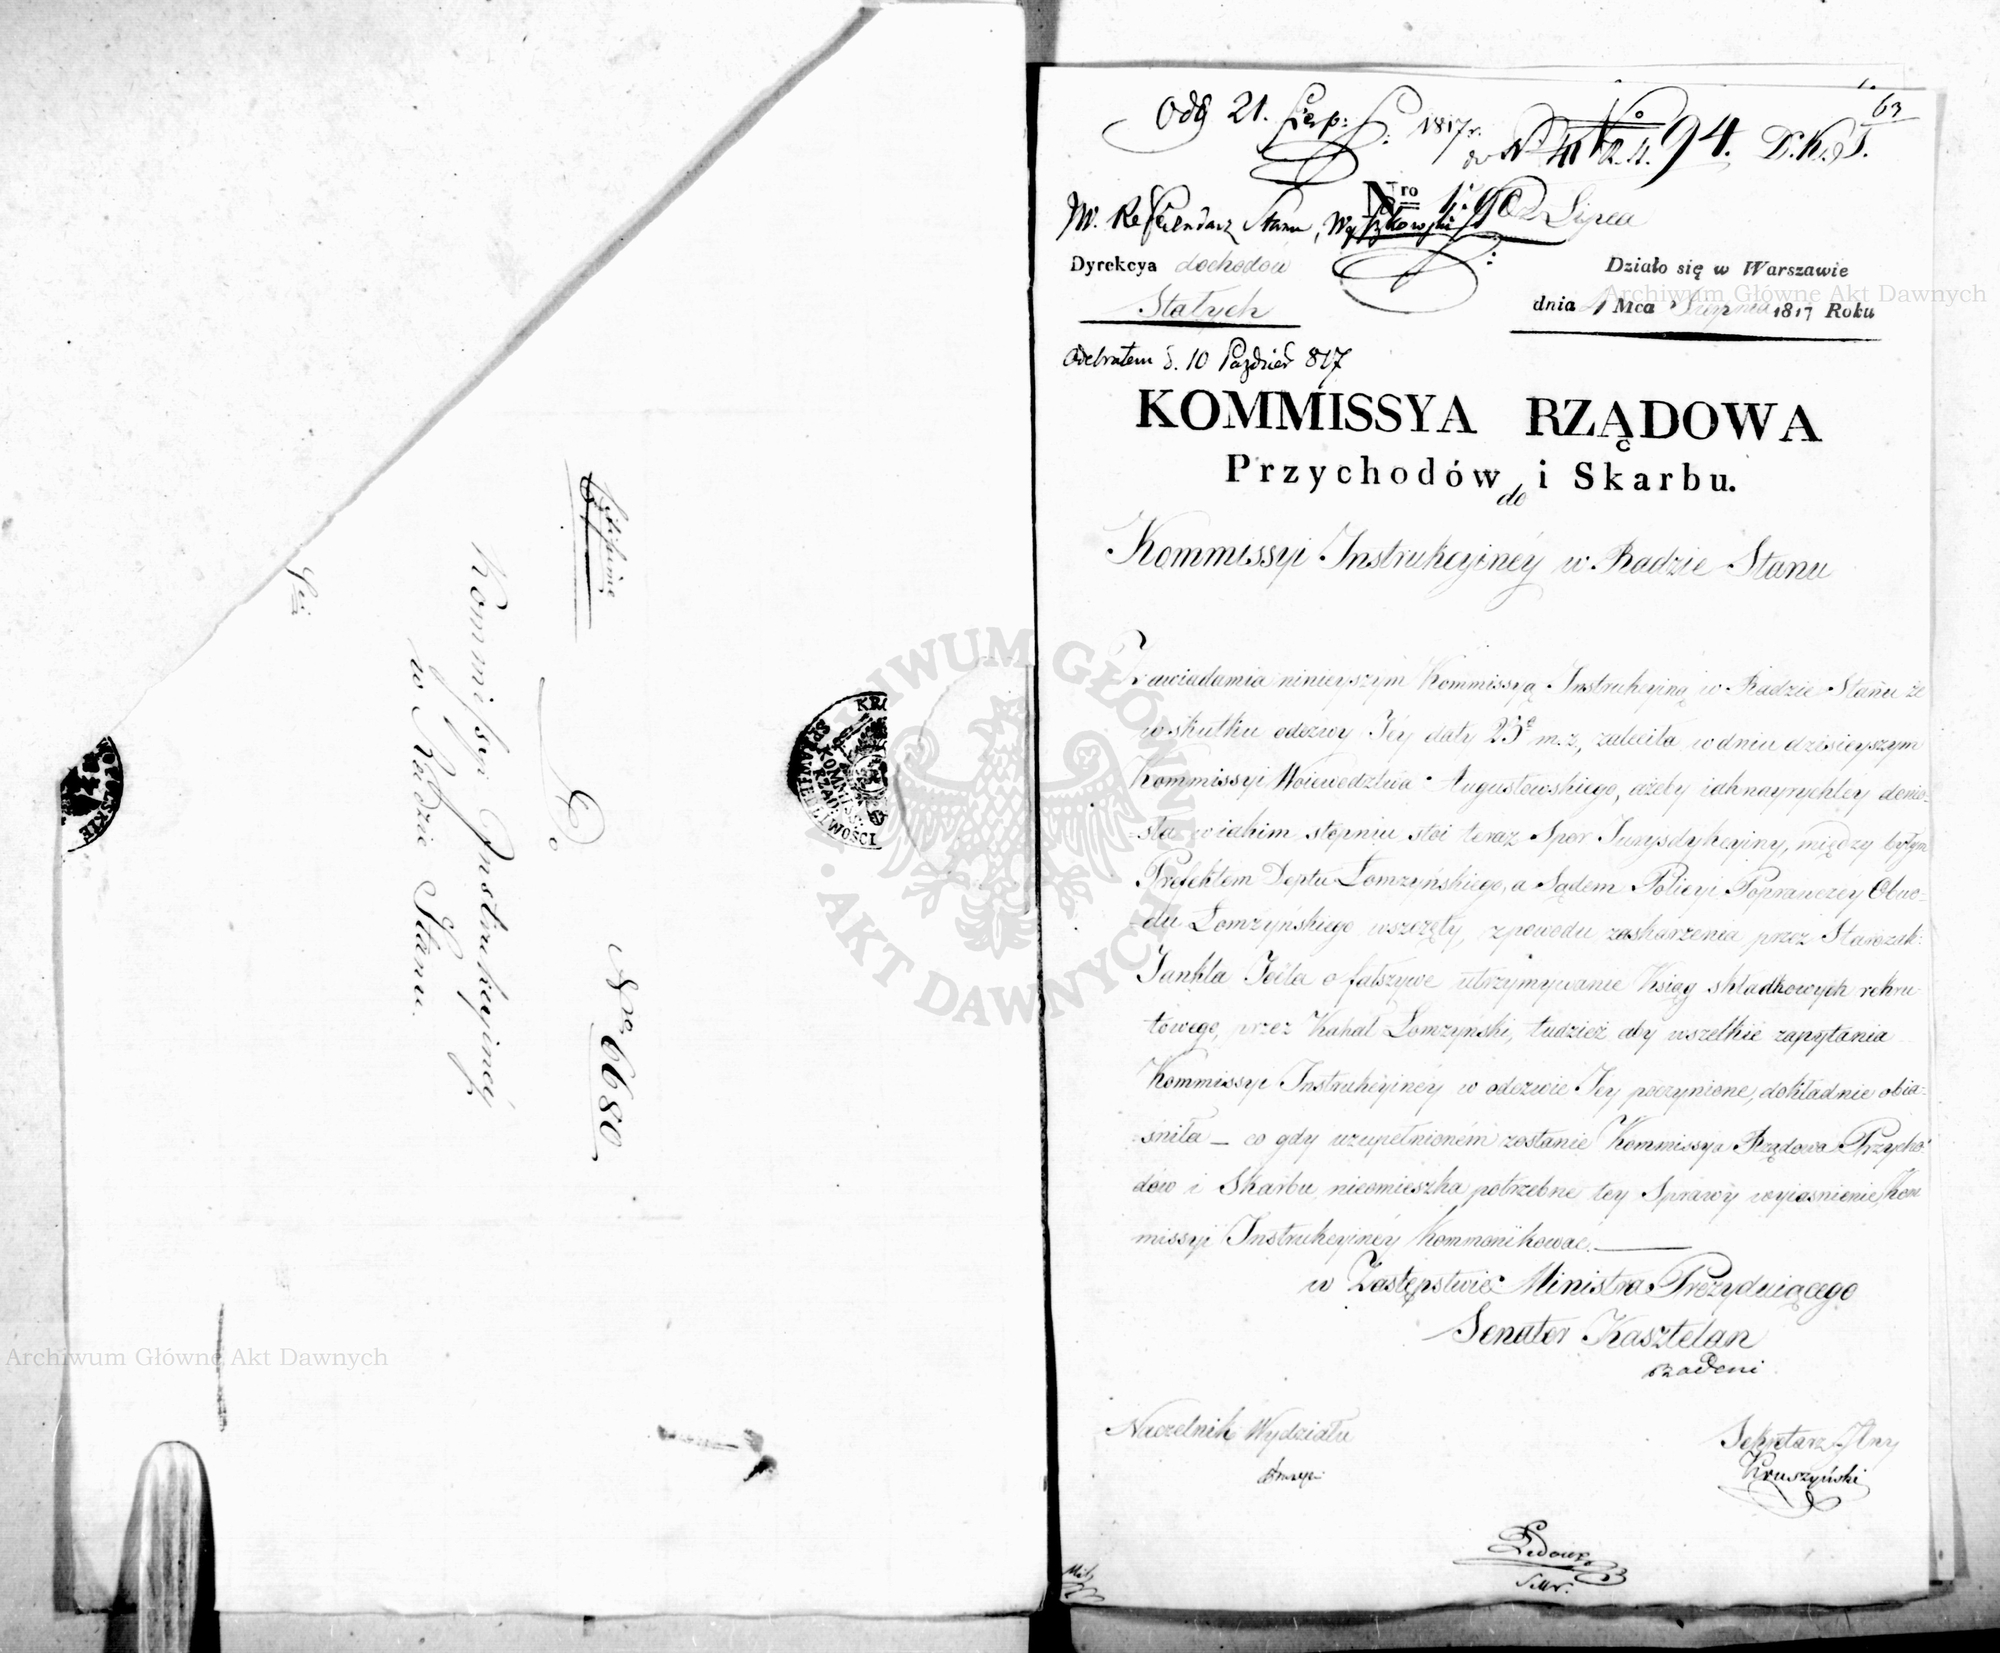 Kommissyi Instrukcyinéy
w Radzie Stanu.
Do
Nro 6680
KOMMISS: RZĄD:
SPRAWIEDLIWOŚCI
63
Odg 21. Sierp: 1817 r.
No 94.
Nro Lipca
W. Referendarz Stanu,
Dyrekcya dochodów
Stałych
Działo się w Warszawie
dnia 4 Mca Sierpnia 1817 Roku
Odebrałem d. 10 Paździer 817
KOMMISSYA RZĄDOWA
Przychodów i Skarbu.
do
Kommissyi Instrukcyinéy w Radzie Stanu
Zawiadamia ninieyszym Kommissyą Instrukcyiną w Radzie Stanu że
w skutku odezwy Jéy daty 25º m. z, zaleciła w dniu dzisieyszym
Kommissyi Woiewództwa Augustowskiego, ażeby iaknayrychley donio-
-sła w iakim stopniu stoi teraz Spor Jurysdykcyiny, między byłym
Prefektem Deptu Łomżyńskiego, a Sądem Policyi Poprawczéy Obwo-
-du Łomżyńskiego wszczęty, z powodu zaskarżenia przez Starozak:
Jankla Joéla o fałszywe utrzymywanie Ksiąg składkowych rekru-
towego, przez Kahał Łomżyński, tudzież aby wszelkie zapytania
Kommissyi Instrukcyinéy w odezwie Jéy poczynione, dokładnie obia-
-śniła — co gdy uzupełnioném zostanie Kommissya Rządowa Przycho-
dów i Skarbu nieomieszka potrzebne téy Sprawy wyiasnienie Kom
missyi Instrukcyinéy Kommonikować. —
w Zastępstwie Ministra Prezyduiącego
Senator Kasztelan
Badeni
Naczelnik Wydziału
Sekretarz Jlny
Kruszyński
Archiwum Główne Akt Dawnych
Archiwum Główne Akt Dawnych
ARCHIWUM GŁÓWNE AKT DAWNYCH